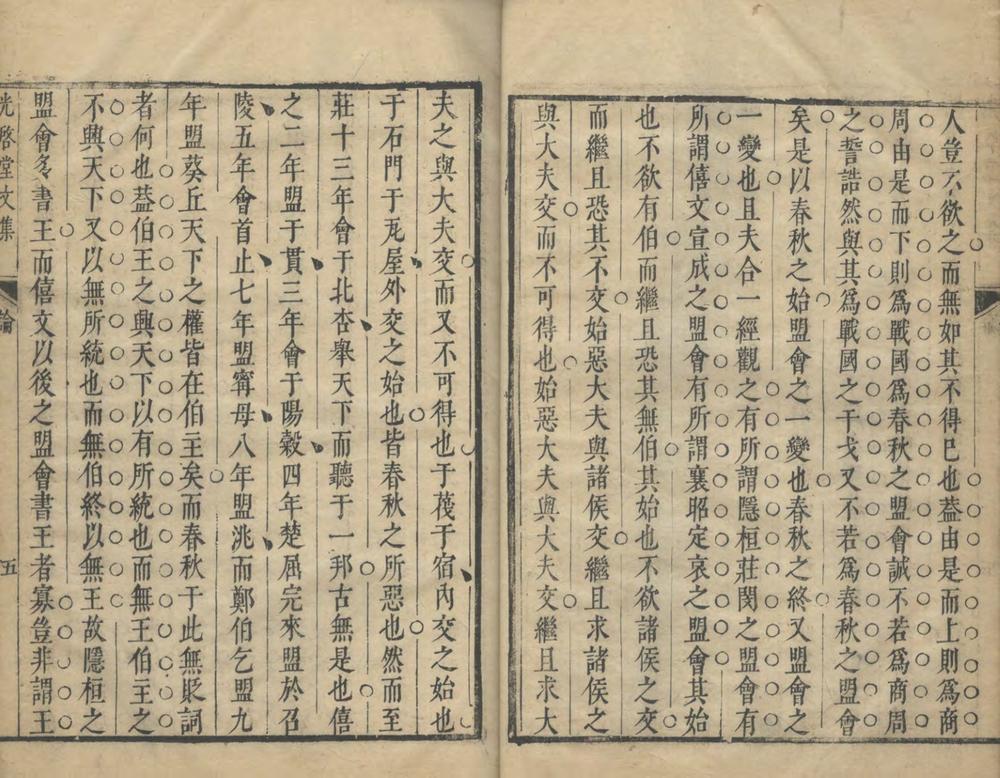 人豈不欲之而無如其不得巳也葢由是而上則爲商
周由是而下則爲戰國爲春秋之盟會誠不若爲商周
之誓誥然與其爲戰國之干戈又不若爲春秋之盟會
矣是以春秋之始盟會之一變也春秋之終又盟會之
一變也且夫合一經觀之有所謂隱桓莊閔之盟會有
所謂僖文宣成之盟會有所謂襄昭定哀之盟會其始
也不欲有伯而繼且恐其無伯其始也不欲諸侯之交
而繼且恐其不交始惡大夫與諸侯交繼且求諸侯之
與大夫交而不可得也始惡大夫與大夫交繼且求大
夫之與大夫交而又不可得也于茷于宿內交之始也
于石門于瓦屋外交之始也皆春秋之所惡也然而至
莊十三年會于北杏舉天下而聽于一邦古無是也僖
之二年盟于貫三年會于陽穀四年楚屈完來盟於召
陵五年會首止七年盟甯母八年盟洮而鄭伯乞盟九
年盟葵丘天下之權皆在伯主矣而春秋于此無貶詞
者何也葢伯王之興天下以有所統也而無王伯主之
不興天下又以無所統也而無伯終以無王故隱桓之
盟會多書王而僖文以後之盟會書王者寡豈非謂王
光啓堂文集
論
五